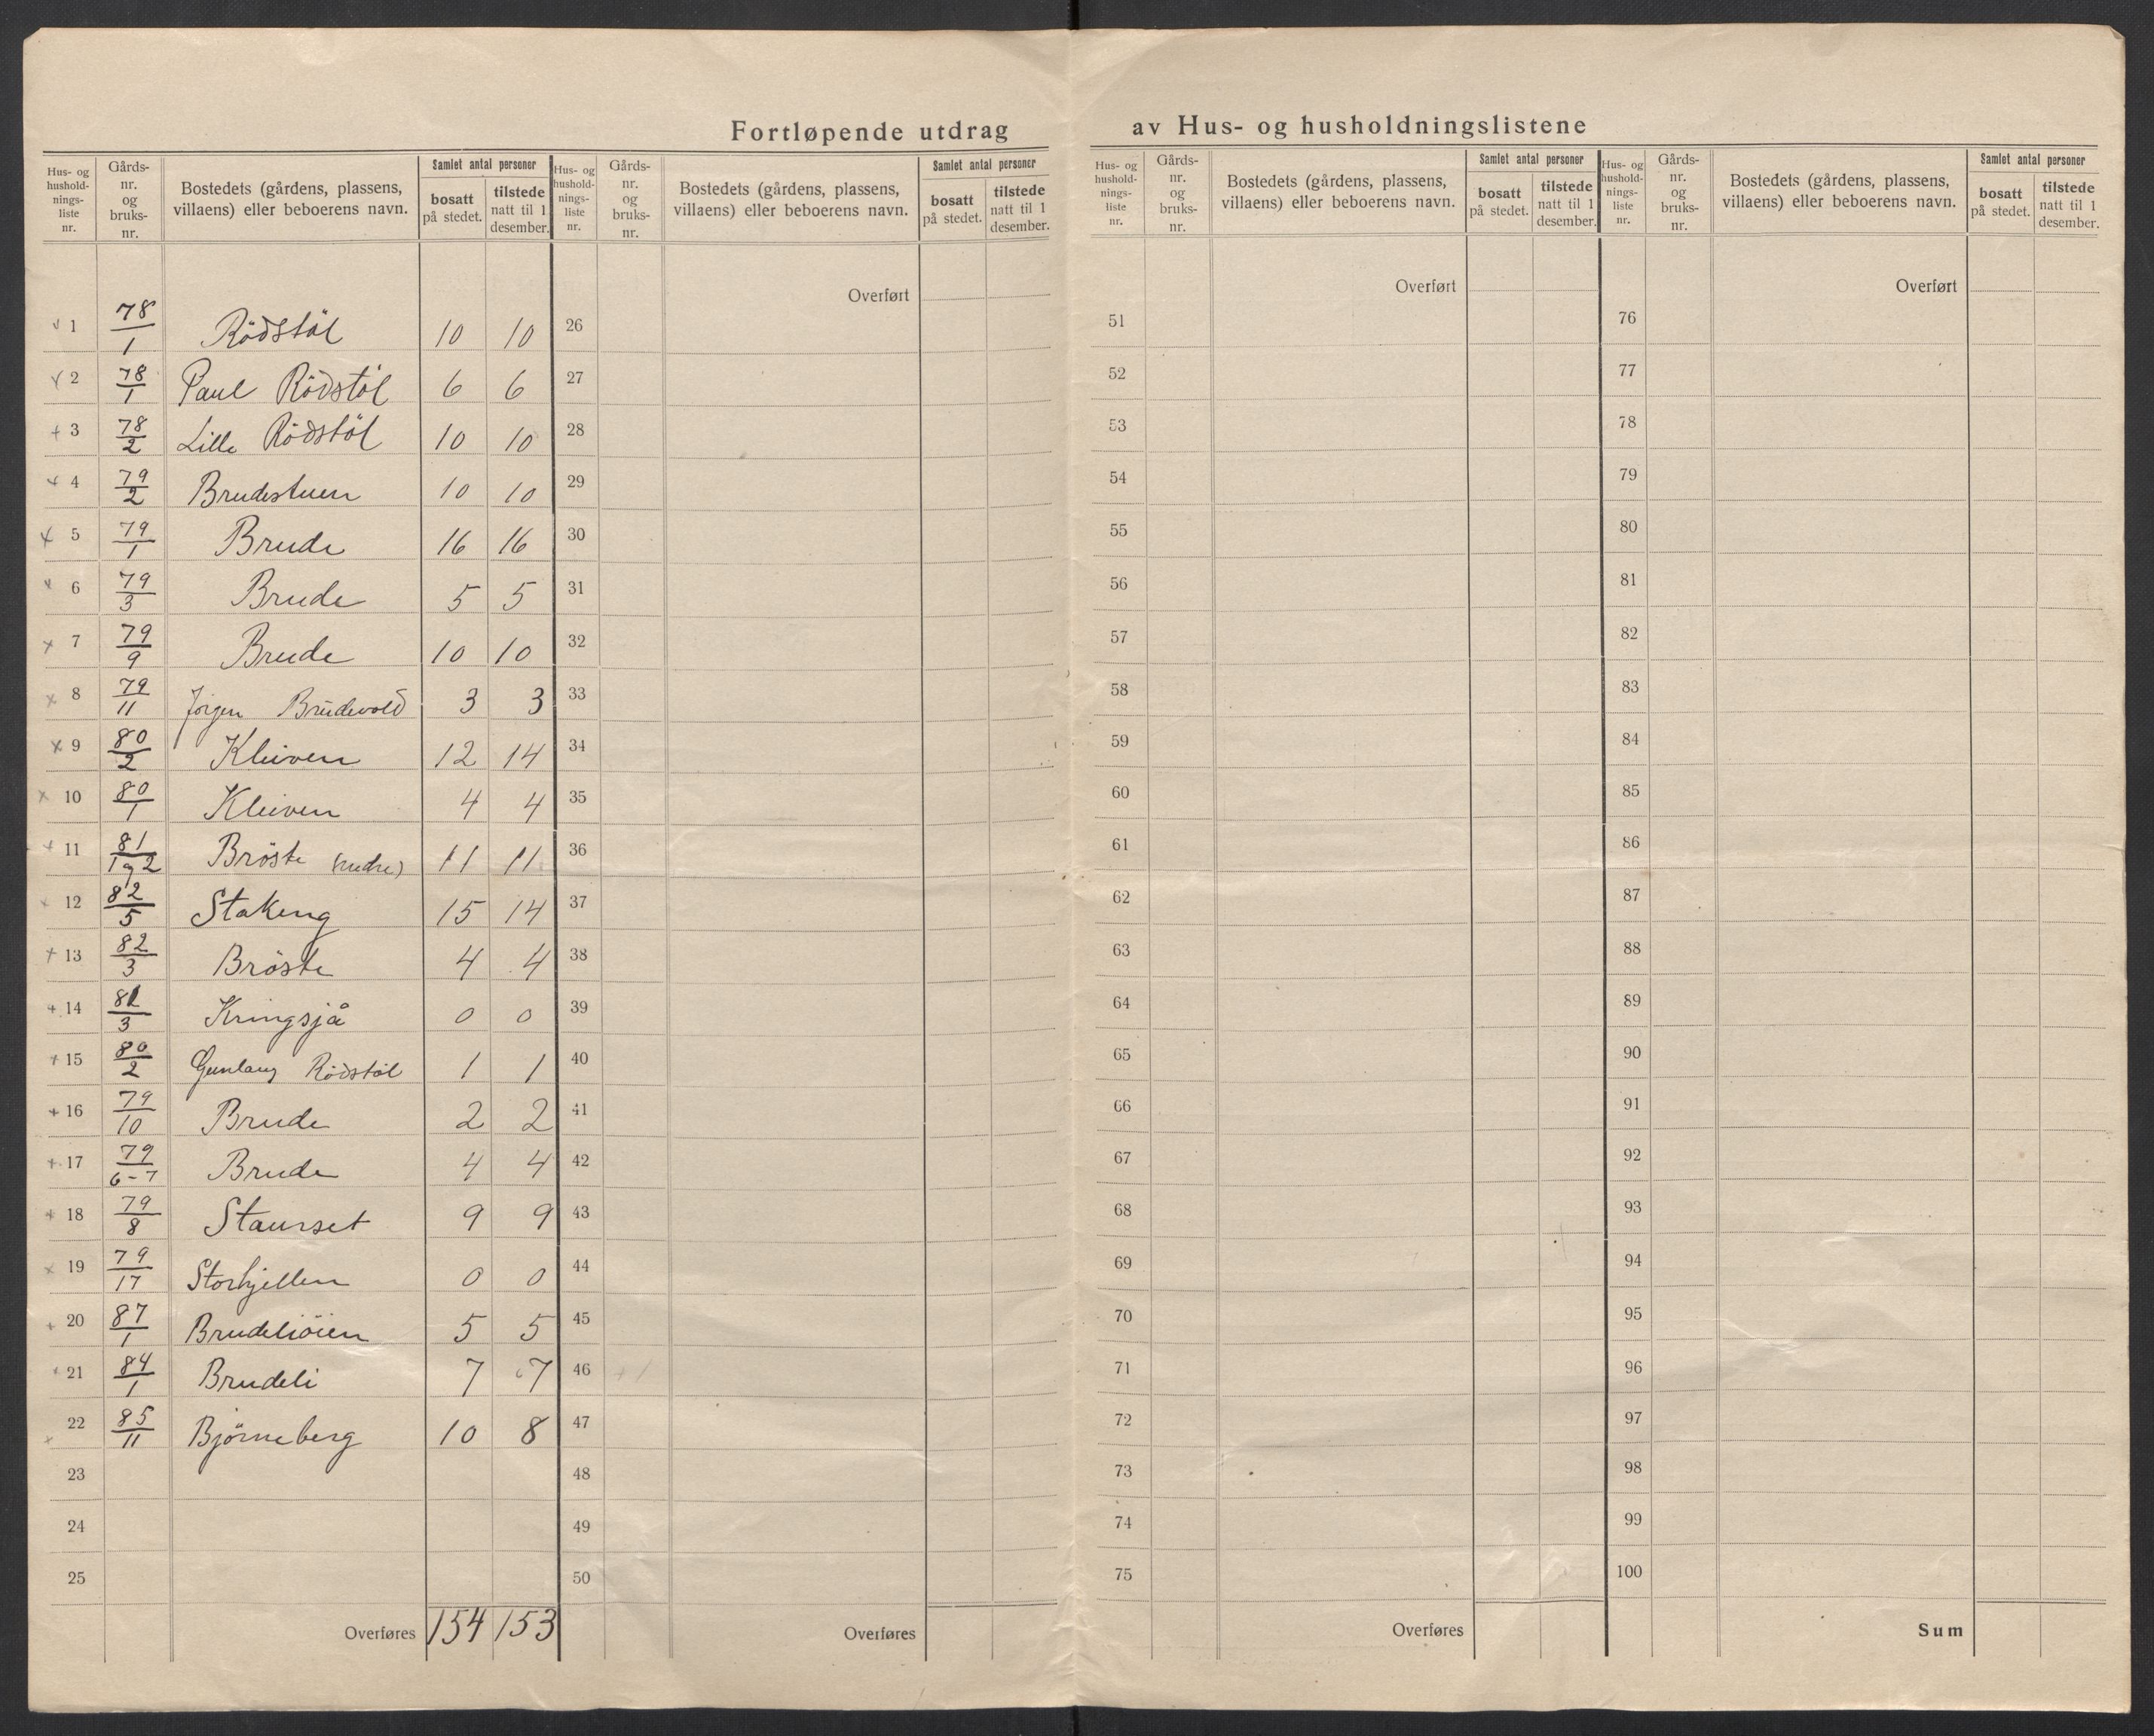 Fortløpende utdrag av Hus- og husholdningslistene
Hus- og hushold-nings-liste nr. | Gårds-nr. og bruks-nr. | Bostedets (gårdens, plassens, villaens) eller beboerens navn. | Samlet antal personer | bosatt på stedet. | tilstede natt til 1 desember.
Hus- og hushold-nings-liste nr. | Gårds-nr. og bruks-nr. | Bostedets (gårdens, plassens, villaens) eller beboerens navn. | Samlet antal personer | bosatt på stedet. | tilstede natt til 1 desember.
Hus- og hushold-nings-liste nr. | Gårds-nr. og bruks-nr. | Bostedets (gårdens, plassens, villaens) eller beboerens navn. | Samlet antal personer | bosatt på stedet. | tilstede natt til 1 desember.
Hus- og hushold-nings-liste nr. | Gårds-nr. og bruks-nr. | Bostedets (gårdens, plassens, villaens) eller beboerens navn. | Samlet antal personer | bosatt på stedet. | tilstede natt til 1 desember.
1 78/1 Rödstöl 10 10
2 78/1 Paul Rödstöl 6 6
3 78/2 Lille Rödstöl 10 10
4 79/2 Brudestuen 10 10
5 79/1 Brude 16 16
6 79/3 Brude 5 5
7 79/9 Brude 10 10
8 79/11 Jörgen Brudevold 3 3
9 80/2 Kleiven 12 14
10 80/1 Kleiven 4 4
11 81/1 og 2 Bröste (nedre) 11 11
12 82/5 Stakeng 15 14
13 82/3 Bröste 4 4
14 81/3 Kringsjå 0 0
15 80/2 Gunlaug Rödstöl 1 1
16 79/10 Brude 2 2
17 79/6-7 Brude 4 4
18 79/8 Staurset 9 9
19 79/17 Storhjellen 0 0
20 87/1 Brudeliöien 5 5
21 84/1 Brudeli 7 7
22 85/11 Björneberg 10 8
23
24
25
Overføres 154 153
Overført
26
27
28
29
30
31
32
33
34
35
36
37
38
39
40
41
42
43
44
45
46
47
48
49
50
Overføres
Overført
51
52
53
54
55
56
57
58
59
60
61
62
63
64
65
66
67
68
69
70
71
72
73
74
75
Overføres
Overført
76
77
78
79
80
81
82
83
84
85
86
87
88
89
90
91
92
93
94
95
96
97
98
99
100
Sum